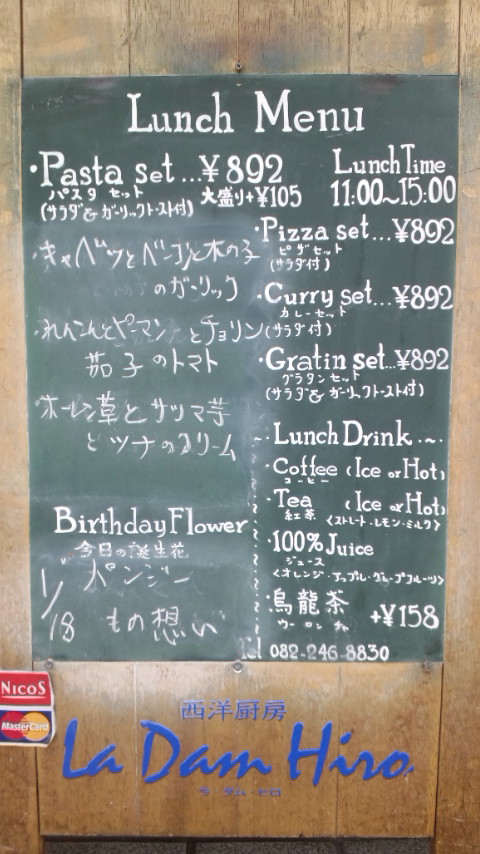 Lunch Menu
・Pasta set...¥892
パスタ セット 大盛り+¥105
(サラダ&ガーリックトースト付)
・キャベツとベーコンと木の子
のガーリック
・れんこんとピーマンとチョリソ
茄子のトマト
・ホーレン草とサツマ芋
とツナのクリーム
Birthday Flower
今日の誕生花
1/18
パンジー
もの想い
Lunch Time
11:00~15:00
・Pizza set...¥892
ピザセット
(サラダ付)
・Curry set...¥892
カレーセット
(サラダ付)
・Gratin set...¥892
グラタンセット
(サラダ&ガーリックトースト付)
Lunch Drink
・Coffee (Ice or Hot)
コーヒー
・Tea (Ice or Hot)
紅茶 <ストレート・レモン・ミルク>
・100% Juice
ジュース
<オレンジ・アップル・グレープフルーツ>
・烏龍茶
ウーロン チャ
+¥158
Tel 082-246-8830
NICOS
MasterCard
西洋厨房
La Dam Hiro
ラ・ダム・ヒロ